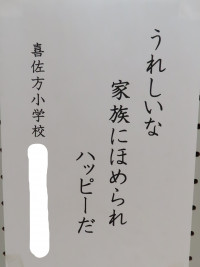 うれしいな
家族にほめられ
ハッピーだ
喜佐方小学校